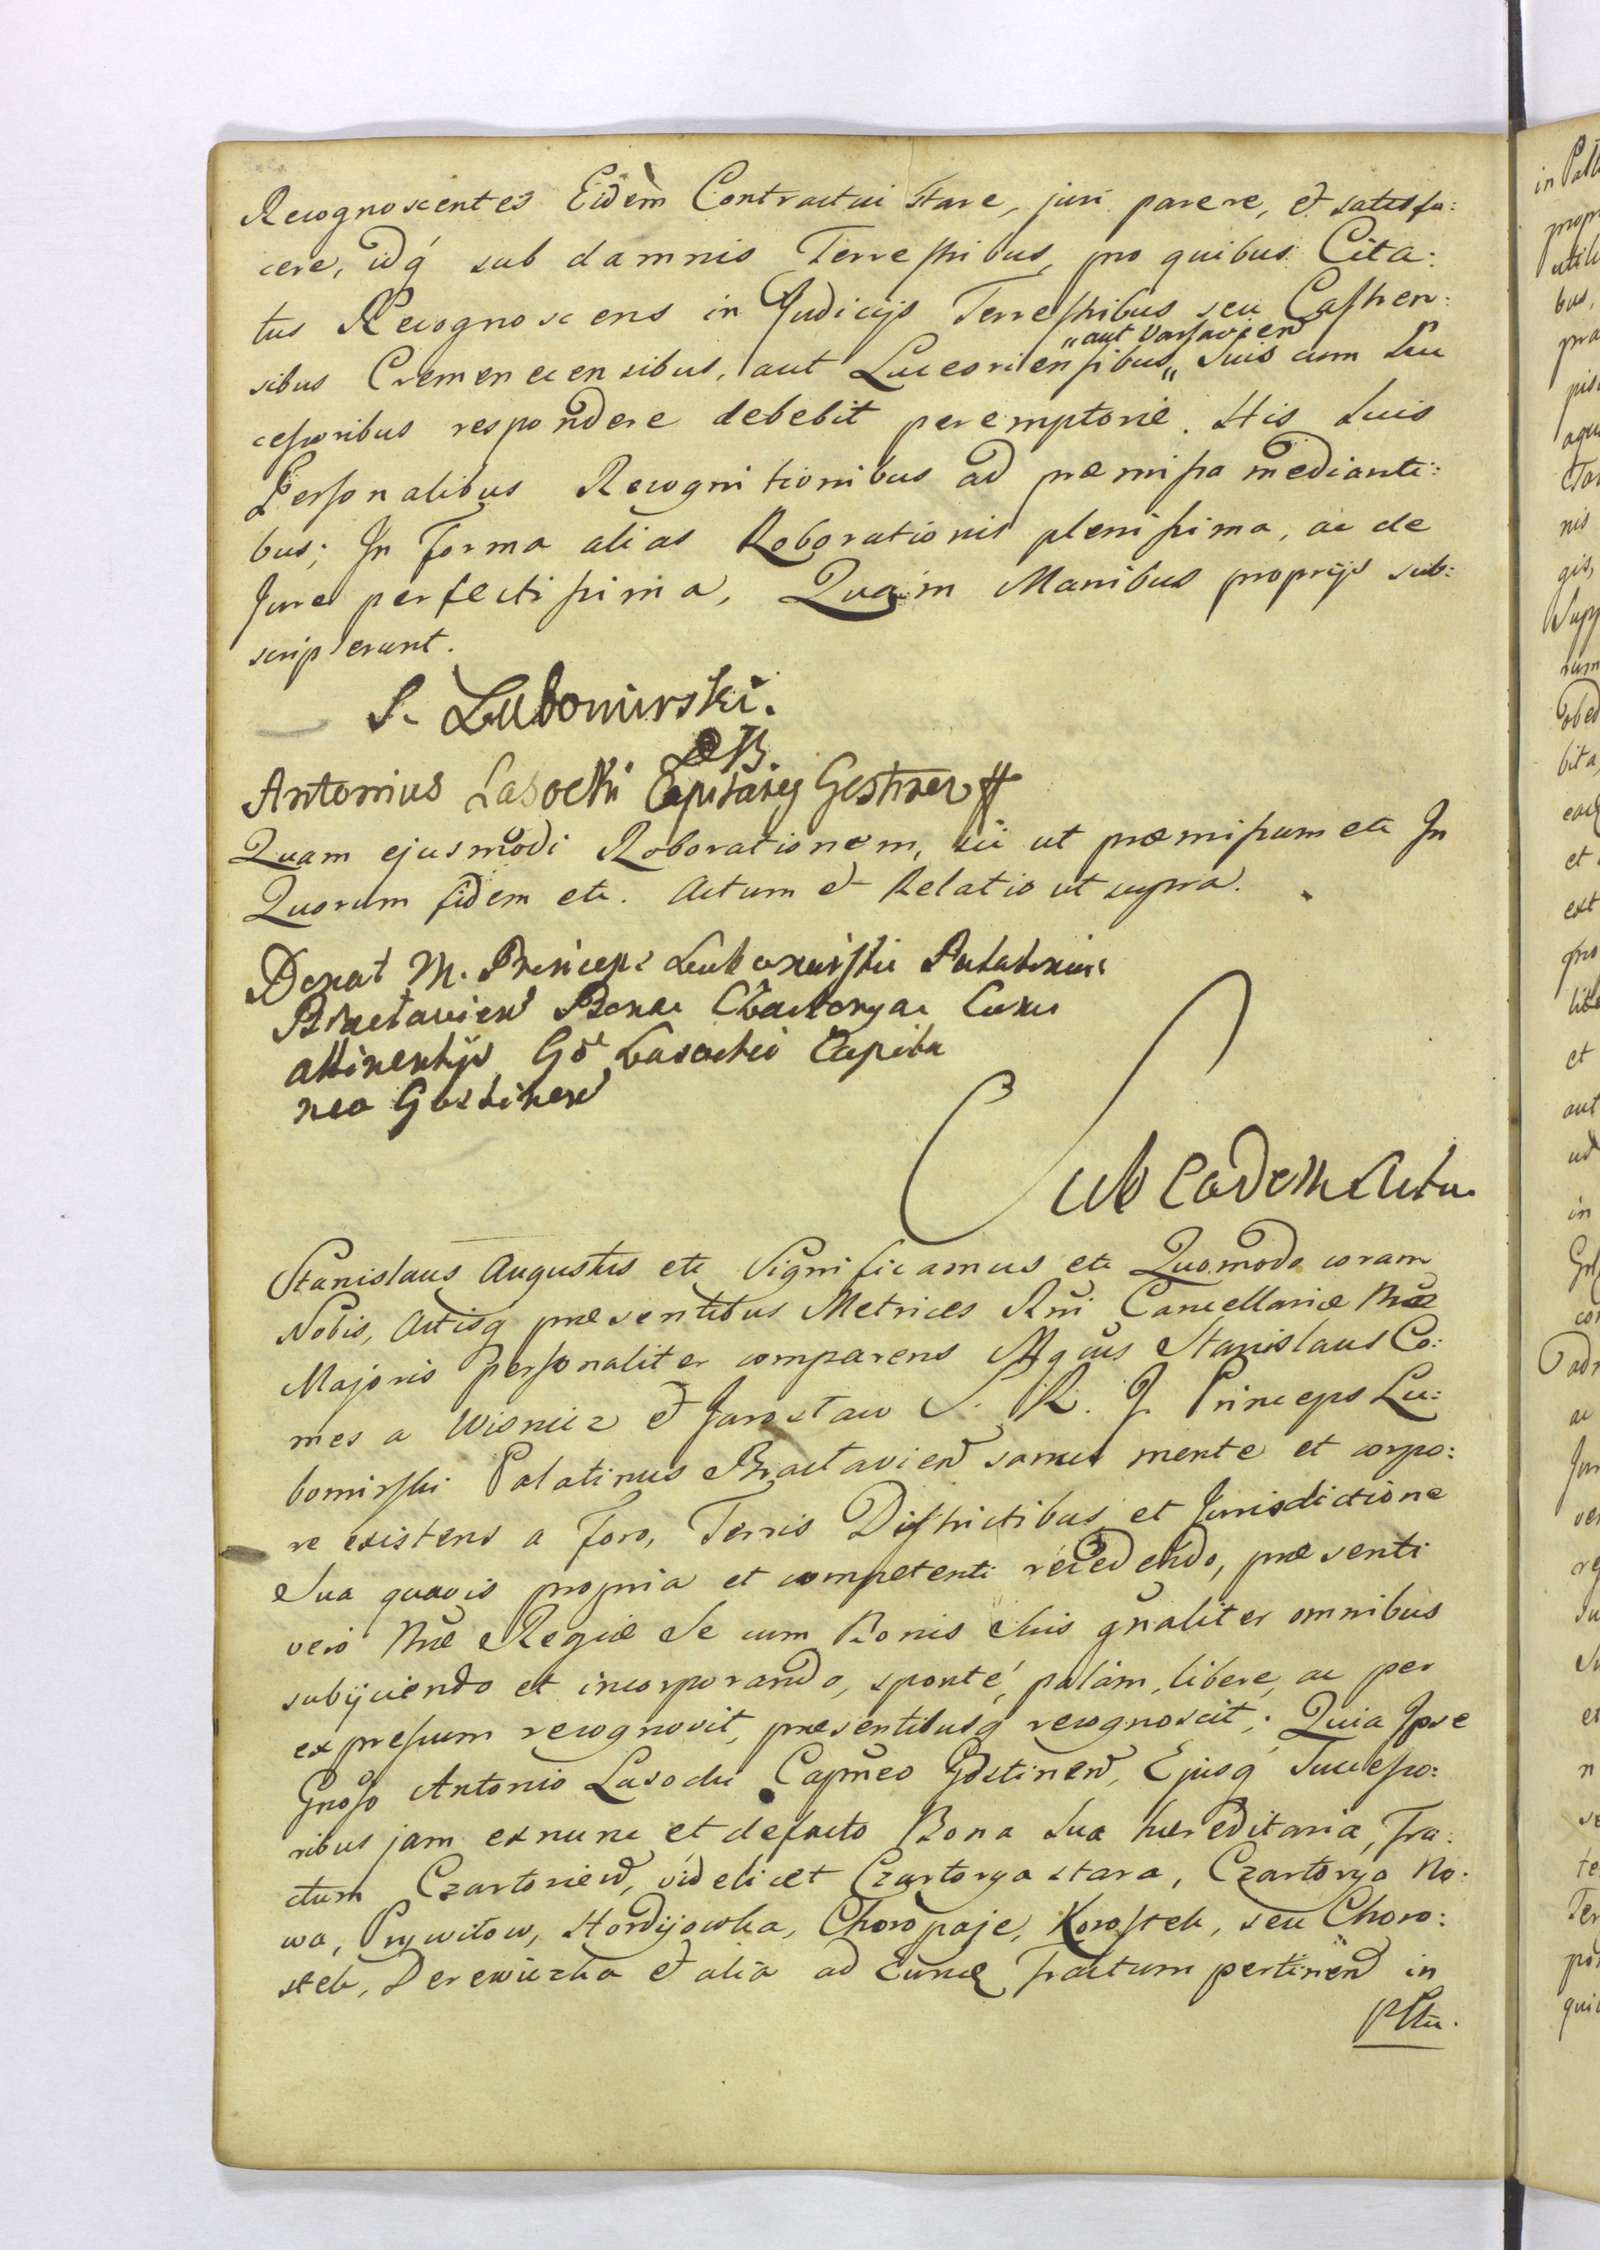 Recognoscentes Eidèm Contractui stare, juri parere, et satisfa:
cere, idq́ sub damnis Terrestribus, pro quibus Cita:
tus Recognoscens in Judicijs Terrestribus seu Castren:
„aut Varsavien
sibus Cremenecensibus, aut Luceoriensibus„ Suis cum Suc
cessoribus respondere debebit peremptorie. His Suis
Personalibus Recognitionibus ad præmissa medianti:
bus; In Forma alias Roborationis plenissima, ac de
Jure perfectissima, Quam Manibus proprijs sub:
scripserunt.
S. Lubomirski.
Antonius Lasocki Gostinen
Quam ejusmodi Roborationem, uti ut præmissum etc In
Quorum fidem etc. Actum et Relatio ut supra.
Donat M. Princeps Lubomirski Palatinus
Braclavien Bona Czartorya Cum
attinentijs Go Lasocki Capita
neo Gostinen
Sub Eadem Actu
Stanislaus Augustus etc Significamus etc Quomodo coram
Nobis, Actisq præsentibus Metrices Rni Cancellariæ Nræ
Majoris personaliter comparens Mgcus Stanislaus Co:
mes a Wisnicz et Jarosław S. R. J. Princeps Lu:
bomirski Palatinus Braclavien sanus mente et corpo:
re existens a Foro, Terris Districtibus et Jurisdictione
Sua quavis propria et competenti recedendo, præsenti
vero Nræ Regiæ Se cum Bonis Suis gnaliter omnibus
subijciendo et incorporando, sponté, palám, libere, ac per
expressum recognovit, præsentibusq́ recognoscit; Quia Ipse
Gnoso Antonio Lasocki Capneo Gostinen, Ejusq́ Successo:
ribus jam exnunc et defacto Bona Sua hæreditaria, Tra:
ctum Czartorien, videlicet Czartorya stara, Czartorya No:
wa, Prywitow, Hordijowka, Choropaje, Korostek, seu Choro:
stek, Derewiczka et alia ad Eund Tractum pertinen in
Pttu.